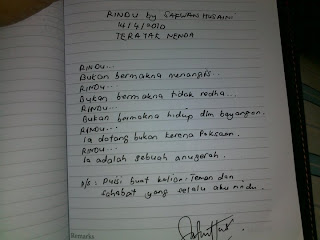 RINDU by SAFWAN HUSAINI
14/4/2010
TERATAK NENDA
RINDU...
Bukan bermakna menangis..
RINDU...
Bukan bermakna tidak redha..
RINDU...
Bukan bermakna hidup dlm bayangan.
RINDU...
Ia datang bukan kerena paksaan.
RINDU...
Ia adalah sebuah anugerah.
P/s: Puisi buat kalian, Teman dan
sahabat yang selalu aku rindu.
Remarks